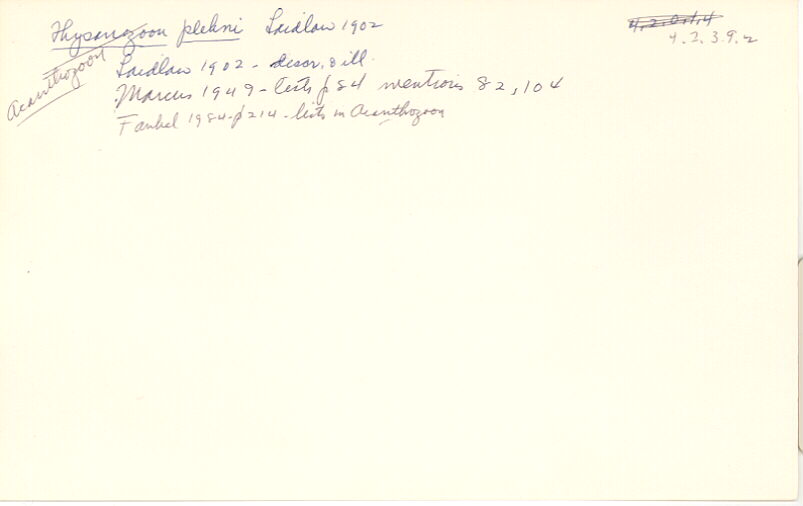 Thysanozoon plehni Laidlaw 1902
4.2.0.1.4
4.3.3.9.2
Acanthozoon
Laidlaw 1902 - descr. & ill.
Marcus 1949 - lists p 84 mentions 82, 104
Faubel 1984 - p 214 - lists in Acanthozoon